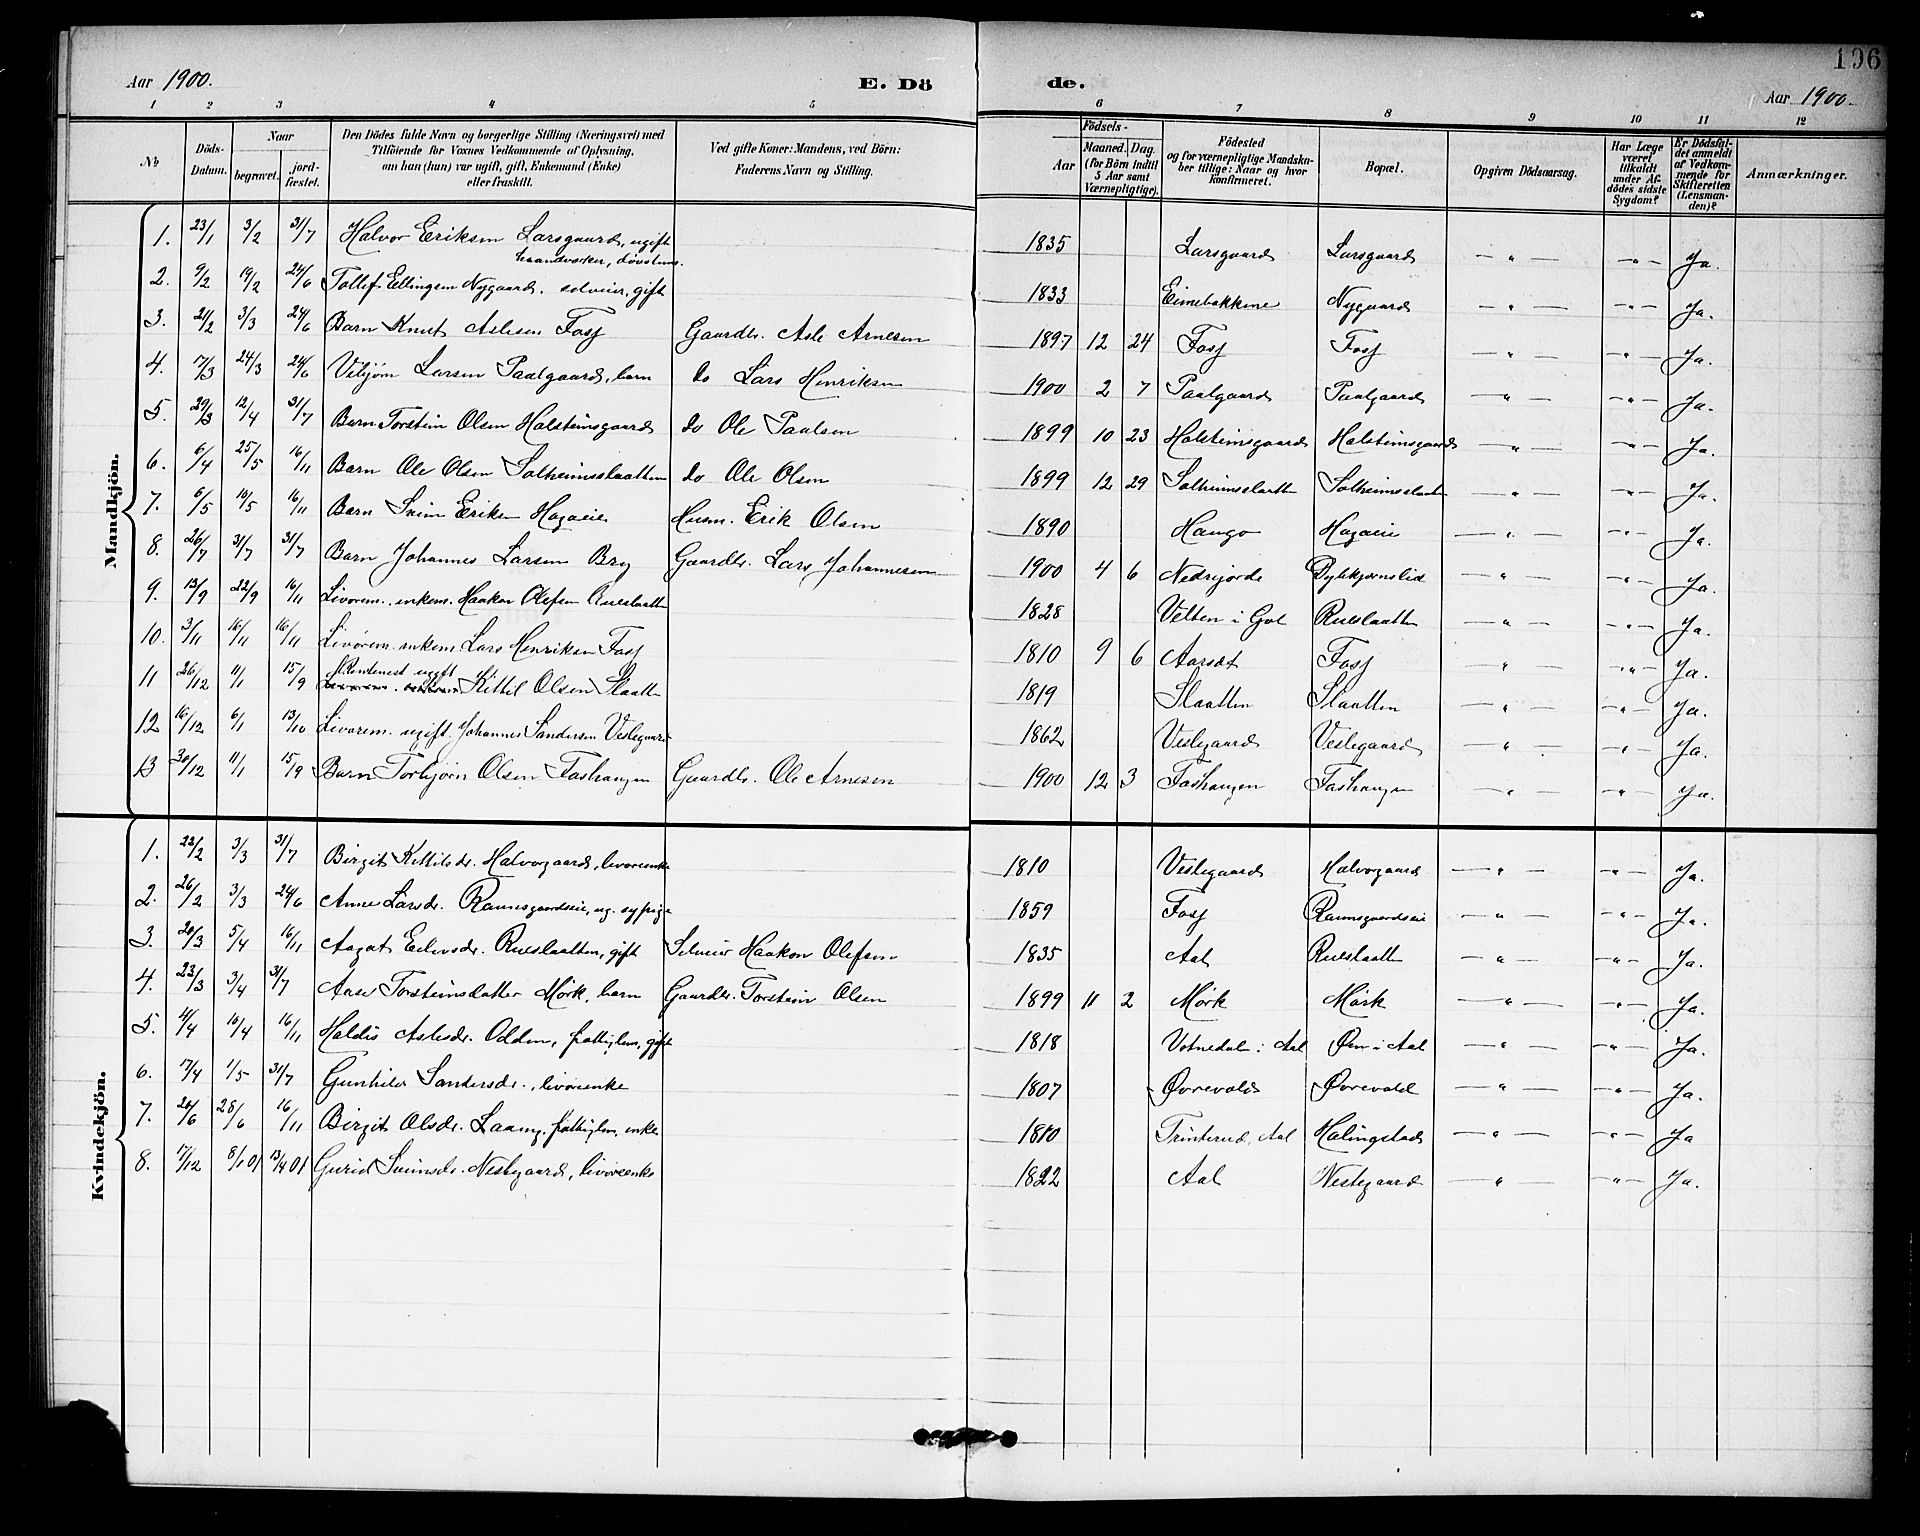 196
Aar 1900. E. Dö de. Aar 1900.
1 2 3 4 5 6 7 8 9 10 11 12
№ Döds-Datum. Naar begravet. jord-fæstet. Den Dödes fulde Navn og borgerlige Stilling (Næringsvei) med Tilföiende for Voxnes Vedkommende af Oplysning, om han (hun) var ugift, gift, Enkemand (Enke) eller fraskilt. Ved gifte Koner: Mandens, ved Börn: Faderens Navn og Stilling. Födsels- Aar Maaned. Dag. (for Börn indtil 5 Aar samt Værnepligtige). Födested og for værnepligtige Mandskaber tillige: Naar og hvor konfirmeret. Bopæl. Opgiven Dödsaarsag. Har Læge været tilkaldt under Afdödes sidste Sygdom? Er Dödsfaldet anmeldt af Vedkommende for Skifteretten (Lensmanden)? Anmærkninger.
Mandkjön.
1. 23/1 3/2 31/7 Halvor Eriksen Larsgaard, ugift haandværker, døvstum. 1835 Larsgaard Larsgaard — " — — " — Ja.
2. 9/2 19/2 24/6 Tollef Ellingsen Nygaard. selveier, gift 1833 Eimebakkene Nygaard — " — — " — Ja.
3. 21/2 3/3 24/6 Barn Knut Aslesen Fosj Gaardbr. Asle Arnesen 1897 12 24 Fosj Fosj — " — — " — Ja.
4. 17/3 24/3 24/6 Vebjøm Larsen Paalgaard, barn do Lars Henriksen 1900 2 7 Paalgaard Paalgaard — " — — " — Ja.
5. 29/3 12/4 31/7 Barn Torstein Olsen Halsteinsgaard do Ole Paulsen 1899 10 23 Halsteinsgaard Halsteinsgaard — " — — " — Ja.
6. 6/4 25/5 16/11 Barn Ole Olsen Solheimsslaatten do Ole Olsen 1899 12 29 Solheimsslaatten Solheimsslaatten — " — — " — Ja.
7. 6/5 10/5 16/11 Barn Svein Eriksen Hagaeie Husm. Erik Olsen 1890 Haugo Hagaeie — " — — " — Ja.
8. 26/7 31/7 31/7 Barn Johannes Larsen Bry Gaardbr. Lars Johannesen 1900 4 6 Nedrejorde Dylekjernslid — " — — " — Ja.
9. 13/9 22/9 16/11 Livørem. enkem. Haakon Olefsen Rueslaatten 1828 Velten i Gol Rueslaatten — " — — " — Ja.
10. 3/11 16/11 16/11 Livørem. enkem. Lars Henriksen Fosj 1810 9 6 Aarset Fosj — " — — " — Ja.
11 26/12 11/1 15/9 Rentenist ugift Kittil Olsen Slaatten 1819 Slaatten Slaatten — " — — " — Ja.
12 16/12 6/1 13/10 Livørem. ugift. Johannes Sandersen Veslegaard 1862 Veslegaard Veslegaard — " — — " — Ja.
13 30/12 11/1 15/9 Barn Torbjørn Olsen Foshaugen Gaardbr. Ole Arnesen 1900 12 3 Foshaugen Foshaugen — " — — " — Ja.
Kvindekjön.
1. 22/2 3/3 31/7 Birgit Kittilsdr. Halvorgaard, livøreenke 1810 Veslegaard Halvorgaard — " — — " — Ja.
2. 26/2 3/3 24/6 Anne Larsdr. Raunsgaardseie, ug. sypige 1859 Fosj Raunsgaardseie — " — — " — Ja.
3. 20/3 5/4 16/11 Aagot Eilevsdr. Rueslaatten, gift Selveier Haakon Olefsen 1835 Aal Rueslaatten — " — — " — Ja.
4. 23/3 3/4 31/7 Aase Torsteinsdatter Mørk, barn Gaardbr. Torstein Olsen 1899 11 2 Mørk Mørk — " — — " — Ja.
5. 4/4 16/4 16/11 Haldis Aslesdr. Odden, fattiglem, gift 1818 Votnedalen i Aal Øen i Aal — " — — " — Ja.
6. 17/4 1/5 31/7 Gunhild Sandersdr., livøreenke 1807 Øvrevold Øvrevold — " — — " — Ja.
7. 20/6 28/6 16/11 Birgit Olsdr. Laang. fattiglem, enke 1810 Trinterud, Aal Halingstad — " — — " — Ja
8. 17/12 8/1 01 13/4 01 Gurid Sveinsdr. Neslegaard, livøreenke 1822 Aal Neslegaard — " — — " — Ja.